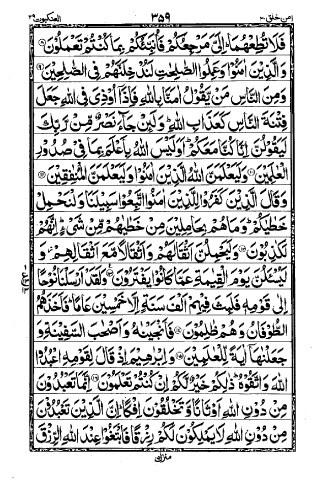 امن خلق ٢٠ ٣٥٩ العنكبوت ٢٩
فَلَا تُطِعْهُمَا ؕ اِلَیَّ مَرْجِعُكُمْ فَاُنَبِّئُكُمْ بِمَا كُنْتُمْ تَعْمَلُوْنَ ۸
وَالَّذِیْنَ اٰمَنُوْا وَعَمِلُوا الصّٰلِحٰتِ لَنُدْخِلَنَّهُمْ فِی الصّٰلِحِیْنَ ۹
وَمِنَ النَّاسِ مَنْ یَّقُوْلُ اٰمَنَّا بِاللّٰهِ فَاِذَاۤ اُوْذِیَ فِی اللّٰهِ جَعَلَ
فِتْنَةَ النَّاسِ كَعَذَابِ اللّٰهِ ؕ وَلَىِٕنْ جَآءَ نَصْرٌ مِّنْ رَّبِّكَ
لَیَقُوْلُنَّ اِنَّا كُنَّا مَعَكُمْ ؕ اَوَلَیْسَ اللّٰهُ بِاَعْلَمَ بِمَا فِیْ صُدُوْرِ
الْعٰلَمِیْنَ ۱۰ وَلَیَعْلَمَنَّ اللّٰهُ الَّذِیْنَ اٰمَنُوْا وَلَیَعْلَمَنَّ الْمُنٰفِقِیْنَ ۱۱
وَقَالَ الَّذِیْنَ كَفَرُوْا لِلَّذِیْنَ اٰمَنُوا اتَّبِعُوْا سَبِیْلَنَا وَلْنَحْمِلْ
خَطٰیٰكُمْ ؕ وَمَا هُمْ بِحٰمِلِیْنَ مِنْ خَطٰیٰهُمْ مِّنْ شَیْءٍ ؕ اِنَّهُمْ
لَكٰذِبُوْنَ ۱۲ وَلَیَحْمِلُنَّ اَثْقَالَهُمْ وَاَثْقَالًا مَّعَ اَثْقَالِهِمْ ؗ وَ
لَیُسْـَٔلُنَّ یَوْمَ الْقِیٰمَةِ عَمَّا كَانُوْا یَفْتَرُوْنَ ۱۳ وَلَقَدْ اَرْسَلْنَا نُوْحًا
اِلٰی قَوْمِهٖ فَلَبِثَ فِیْهِمْ اَلْفَ سَنَةٍ اِلَّا خَمْسِیْنَ عَامًا ؕ فَاَخَذَهُمُ
الطُّوْفَانُ وَهُمْ ظٰلِمُوْنَ ۱۴ فَاَنْجَیْنٰهُ وَاَصْحٰبَ السَّفِیْنَةِ وَ
جَعَلْنٰهَاۤ اٰیَةً لِّلْعٰلَمِیْنَ ۱۵ وَاِبْرٰهِیْمَ اِذْ قَالَ لِقَوْمِهِ اعْبُدُوا
اللّٰهَ وَاتَّقُوْهُ ؕ ذٰلِكُمْ خَیْرٌ لَّكُمْ اِنْ كُنْتُمْ تَعْلَمُوْنَ ۱۶ اِنَّمَا تَعْبُدُوْنَ
مِنْ دُوْنِ اللّٰهِ اَوْثَانًا وَّتَخْلُقُوْنَ اِفْكًا ؕ اِنَّ الَّذِیْنَ تَعْبُدُوْنَ
مِنْ دُوْنِ اللّٰهِ لَا یَمْلِكُوْنَ لَكُمْ رِزْقًا فَابْتَغُوْا عِنْدَ اللّٰهِ الرِّزْقَ